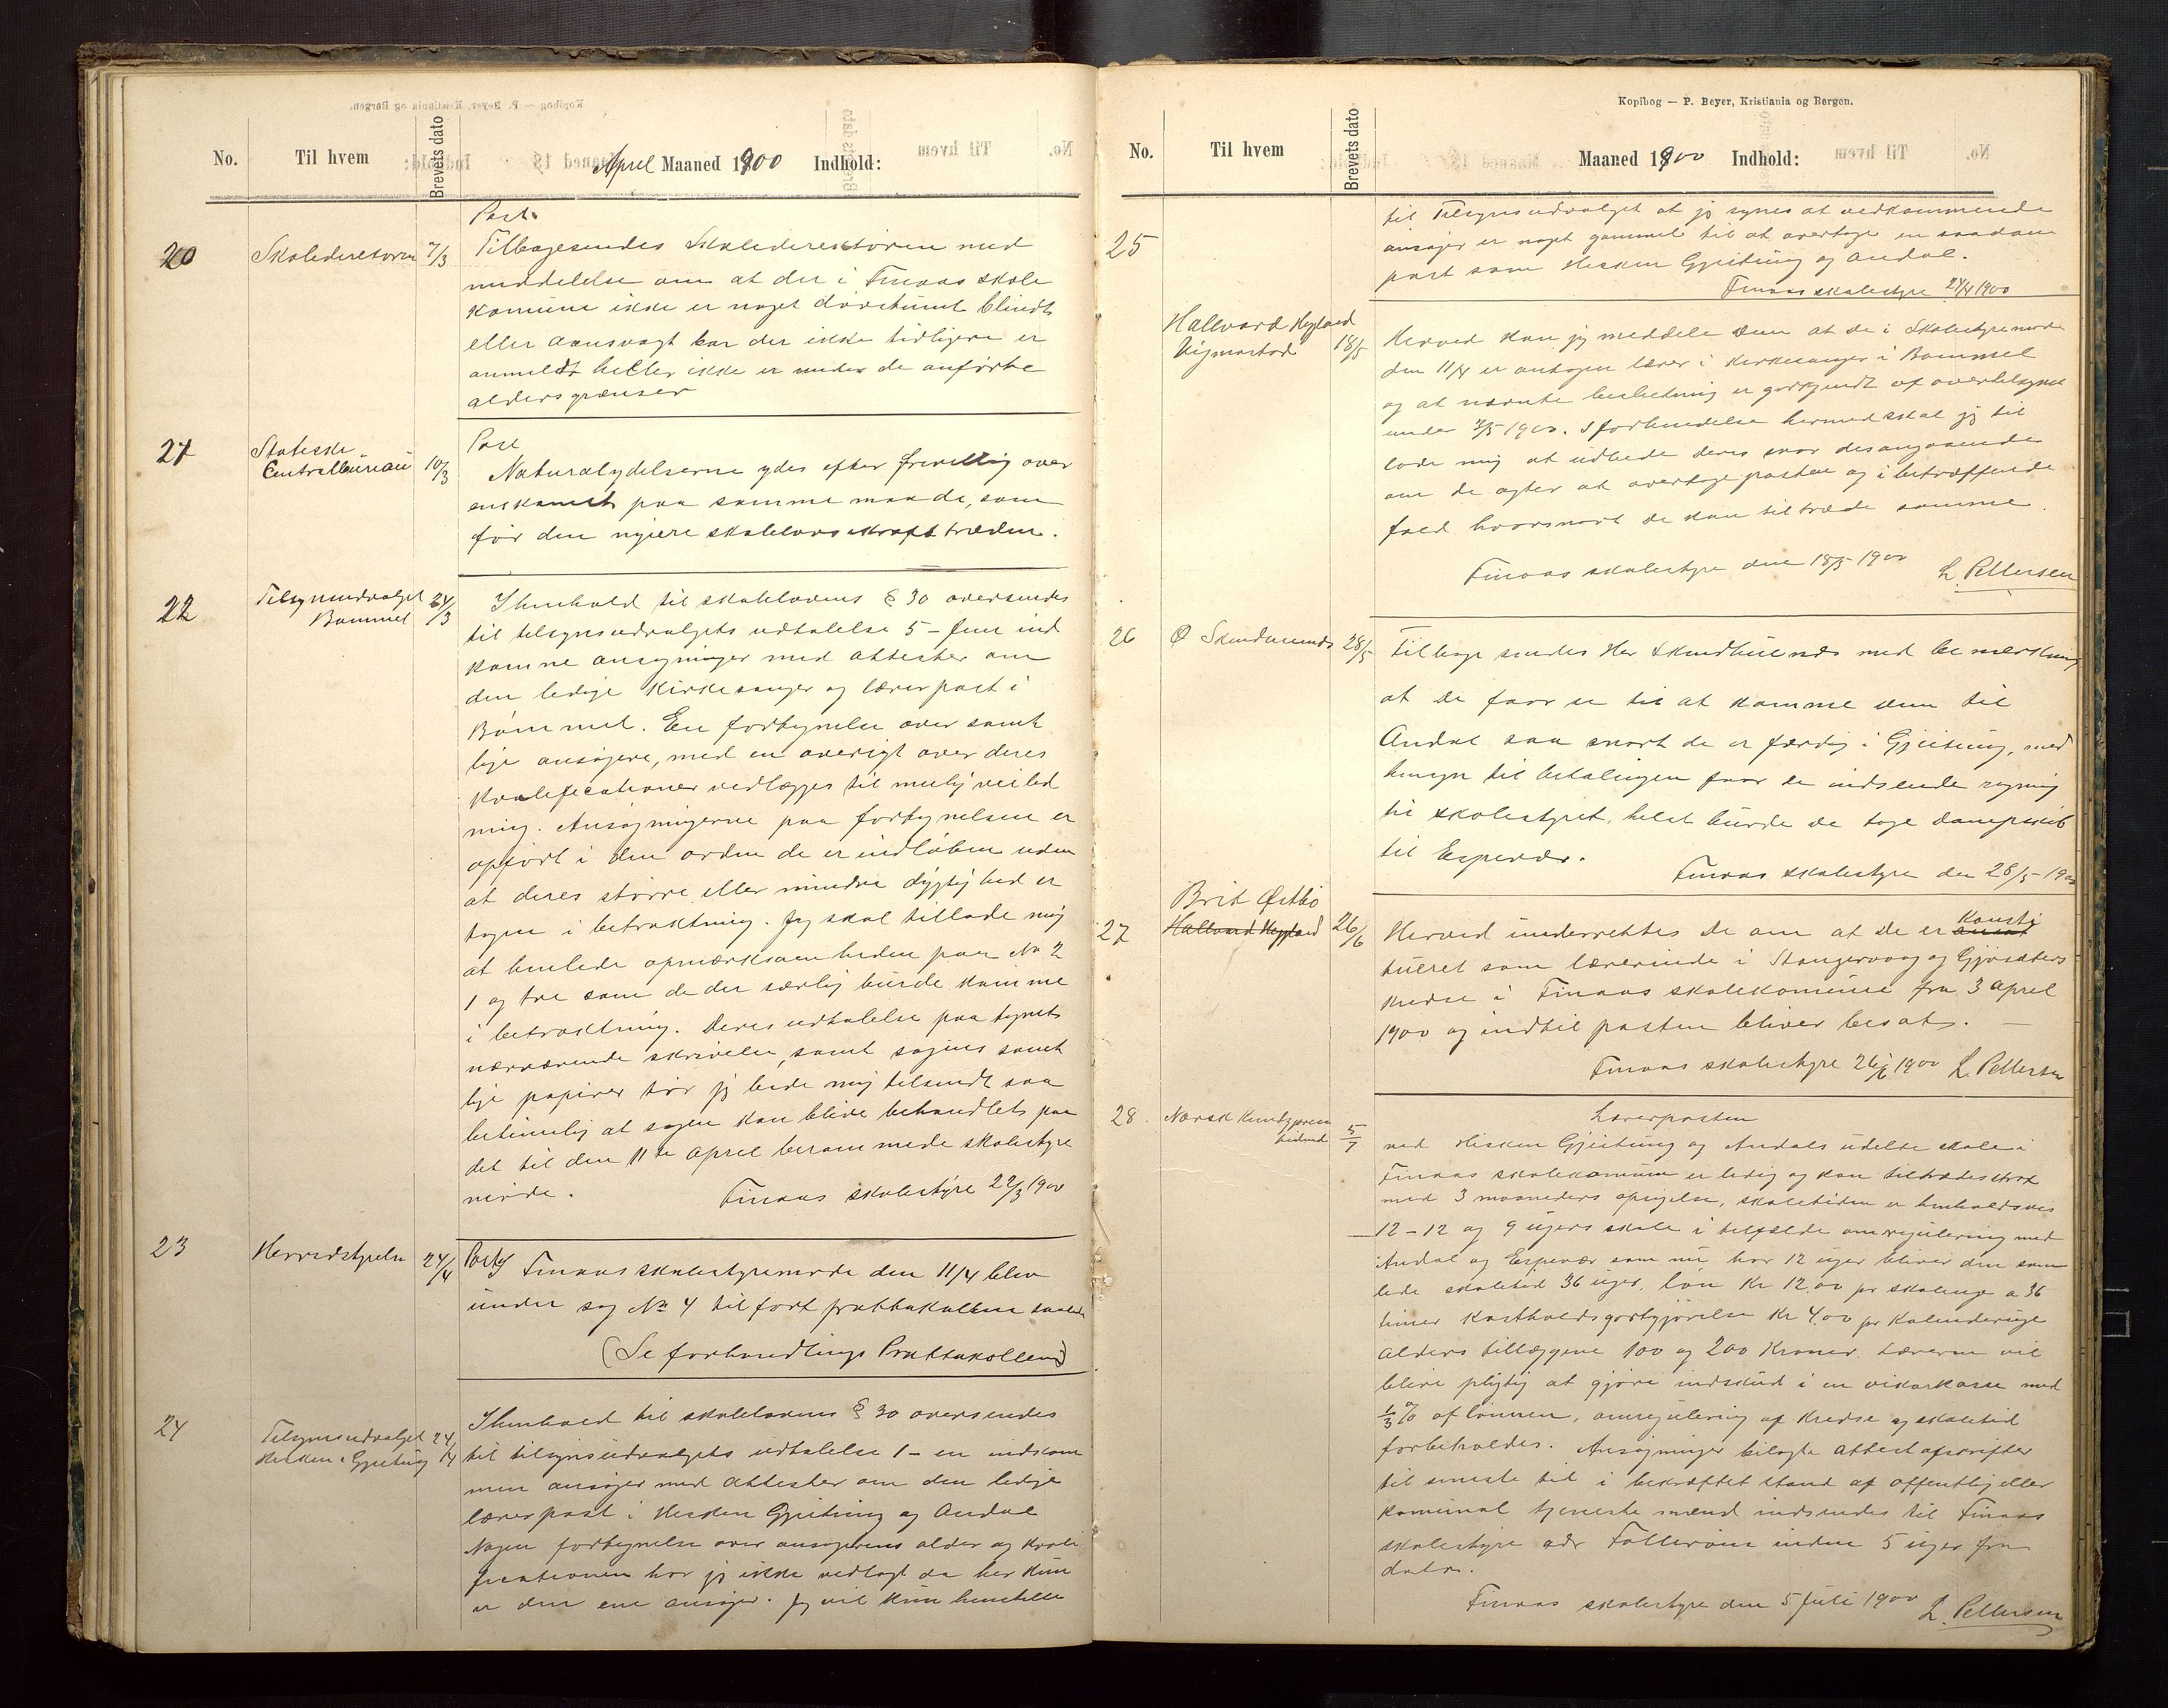 No. Til hvem Brevets dato April Maaned 1900 Indhold:
Post.
20 Skoledirektøren 7/3 Tilbagesendes Skoledirektøren med
meddelelse om at der i Finaas skole
komune ikke er noget døvstumt blindt
eller aansvagt barn der ikke tidligere er
anmeldt heller ikke er under de anførte
aldersgrænser
21 Statistiske Centralbureau 10/3 Post
Naturalydelserne ydes efter frivillig over
enskomst paa samme maade, som
før den nyere skolelovs ikrafttræden.
22 Tilsynsudvalget Bømmel 24/3 I henhold til skolelovens § 30 oversendes
til tilsynsudvalgets udtalelse 5 - fem ind
komne ansøgninger med attester om
den ledige kirkesanger og lærerpost i
Bømmel. En fortegnelse over samt
lige ansøgere, med en oversigt over deres
kvalificationer vedlægges til mulig veiled
ning. Ansøgningerne paa fortegnelsen er
opført i den orden de er indløbne uden
at deres større eller mindre dygtighed er
tagen i betraktning. Jeg skal tillade mig
at henlede opmærksomheden paa No 2
1 og tre som de der særlig burde komme
i betraktning. Deres udtalelse paa
nærværende skrivelse, samt sagens samt
lige papirer tør jeg bede mig tilsendt saa
betimelig at sagen kan blive behandlet paa
det til den 11te April berammede skolestyre
møde. Finaas skolestyre 22/3 1900
23 Herredstyrelsen 24/4 Post I Finaas skolestyremøde den 11/4 blev
under sag No 4 tilført prottokollen saalede
(Se forhandlings Prottokollen)
24 Tilsynsudvalget Hisken Gjeitung 24/4 I henhold til skolelovens § 30 oversendes
til tilsynsudvalgets udtalelse 1 - en indkom
men ansøger med attester om den ledige
lærerpost i Hisken Gjeitung og Andal
Nogen fortegnelse over ansøgerens alder og kvali
ficationen har jeg ikke vedlagt da her kun
er den ene ansøger. Jeg vil kun henstille
Kopibog — P. Beyer, Kristiania og Bergen.
No. Til hvem Brevets dato Maaned 1900 Indhold:
til Tilsynsudvalget at jeg synes at vedkommende
25 ansøger er noget gammel til at overtage en saadan
post som Hisken Gjeitung og Andal.
Finaas skolestyre 24/4 1900
Hallvard Vigmostad 18/5 Herved kan jeg meddele Dem at De i Skolestyremøde
den 11/4 er antagen lærer i kirkesanger i Bømmel
og at nævnte beslutning er godkjendt af overtilsynet
under 7/5 1900. I forbindelse hermed skal jeg til
lade mig at udbede deres svar desangaaende
om de agter at overtage posten og i betræffende
fald hvorsnart de kan tiltræde samme.
Finaas skolestyre den 18/5 1900 L. Pettersen
26 Ø 28/5 Tilbage sendes Her med bemerkning
at De faar se til at komme dem til
Andal saa snart de er færdig i Gjeitung, med
hensyn til betalingen faar de indsende regning
til skolestyret, helst burde de tage dampskib
til Espevær.
Finaas skolestyre den 28/5 1900
27 Brit Østbø 26/6 Herved underrettes De om at De er konsti
tueret som lærerinde i Stangervaag og Gjøsæters
kredse i Finaas skolekomune fra 3 april
1900 og indtil posten bliver besat.
Finaas skolestyre 26/6 1900 L. Pettersen
28. Norsk Kundgjørelses tidende 5/7 Lærerposten
ved Hisken Gjeitung og Andals udelte skole i
Finaas skolekomune er ledig og kan tiltrædes strax
med 3 maaneders opsigelse, skoletiden er henholdsvis
12 - 12 og 9 ugers skole i tilfælde omregulering med
Andal og Espevær som nu har 12 uger bliver den sam
lede skoletid 36 uger. Løn Kr 12.00 pr skoleuge a 36
timer Kostholdsgodtgjørelse Kr 4.00 pr Kalenderuge
Alders tillæggene 100 og 200 Kroner. Læreren vil
blive pligtig at gjøre indskud i en vikarkasse med
1/3 % af lønnen, omregulering af kredse og skoletid
forbeholdes. Ansøgninger bilagte attestafskrifter
til seneste tid i bekræftet stand af offentlig eller
komunal tjeneste mænd indsendes til Finaas
skolestyre adr Føllerøen inden 5 uger fra
dato.
Finaas skolestyre den 5 Juli 1900 L. Pettersen